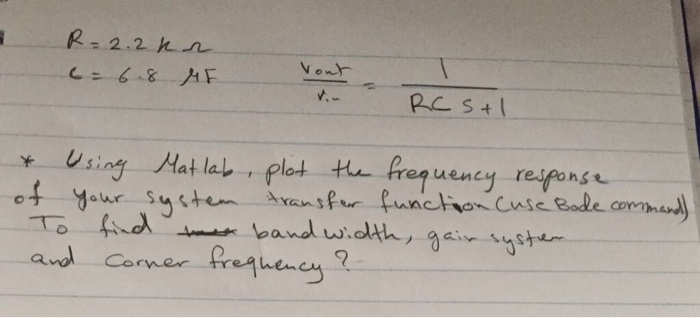 R = 2.2 k Ω
C = 6.8 MF
Vout / Vin = 1 / RC S + 1
* Using Matlab, plot the frequency response
of your system transfer function (use Bode command)
To find bandwidth, gain system
and corner frequency?